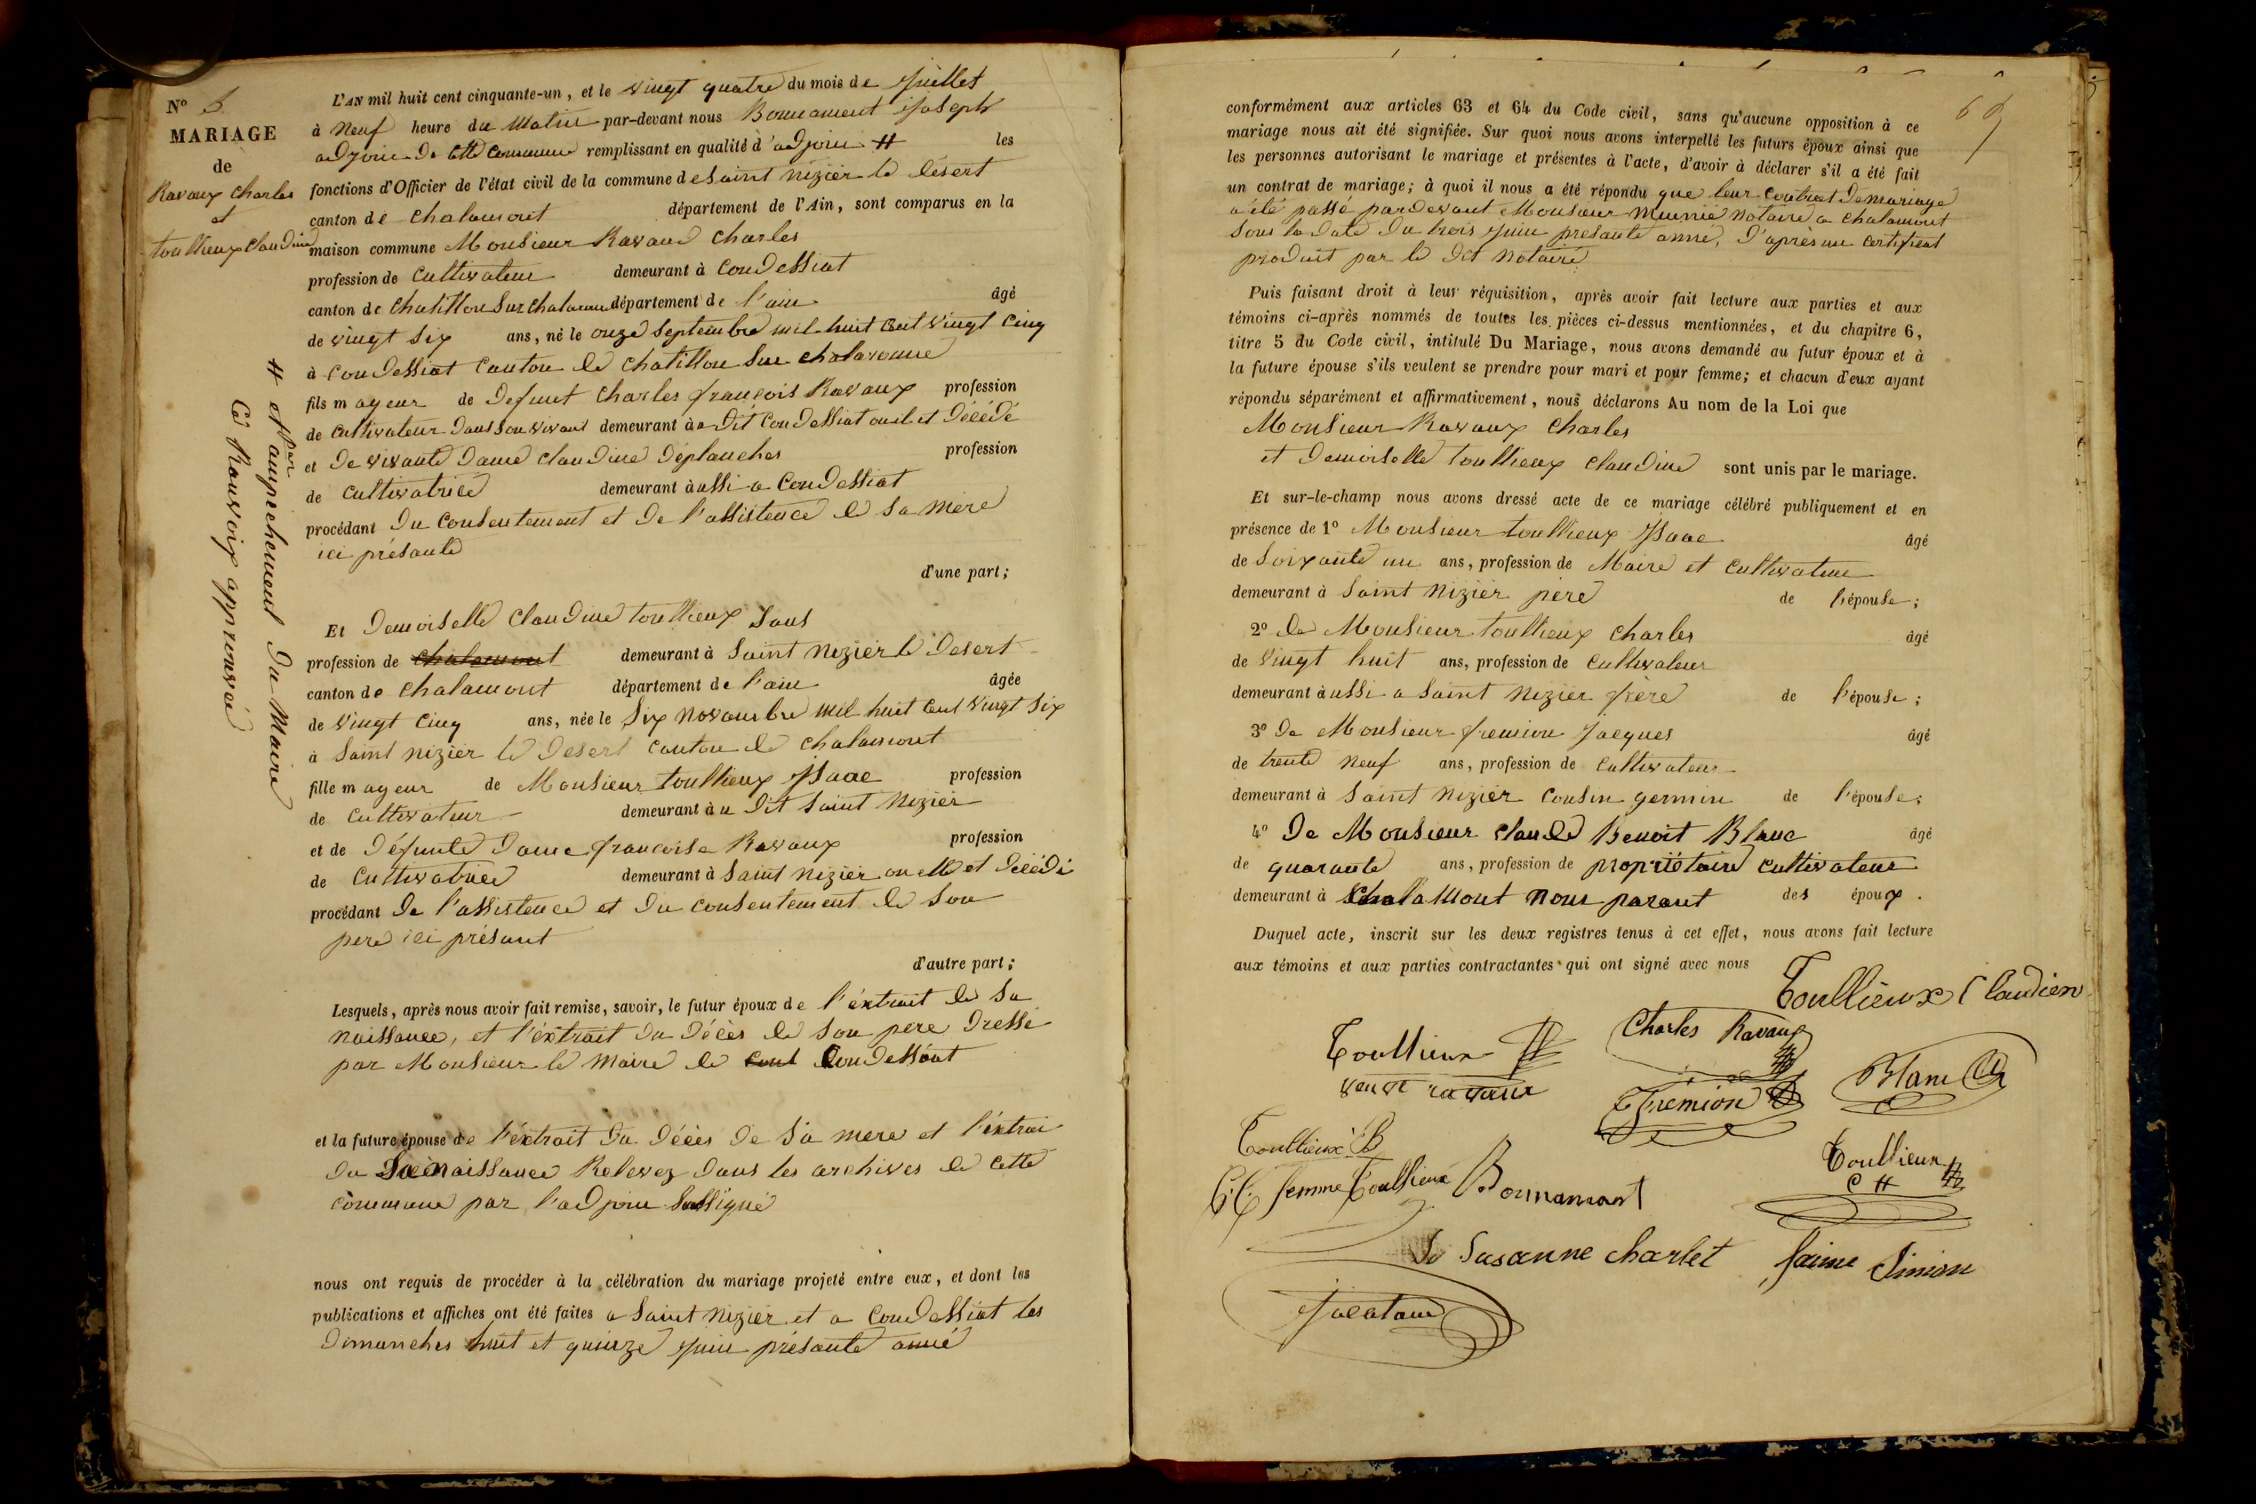 N° 5
MARIAGE
de
Ravaux Charles
et
toullieux claudine
L'AN mil huit cent cinquante-un, et le vingt quatre du mois de juillet
à neuf heure du Matin par-devant nous Bonnament joseph
adjoin de cette commune remplissant en qualité d'adjoin # les
fonctions d'Officier de l'état civil de la commune de saint nizier le désert
canton de chalamont département de l'Ain, sont comparus en la
maison commune Monsieur Ravaux Charles
profession de cultivateur demeurant à condessiat
canton de chatillon sur chalaronne département de l'ain âgé
de vingt six ans, né le onze septembre mil huit cent vingt cinq
à condessiat canton de chatillon sur chalaronne
fils mayeur de defunt charles françois Ravaux profession
de cultivateur dans son vivant demeurant à a dit condessiat ou il et décédé
et de vivante dame claudine déplanches profession
de cultivatrice demeurant à aussi a condessiat
procédant du consentement et de l'assistence de sa mère
ici présante
d'une part;
Et demoiselle claudine toullieux sans
profession de chalamont demeurant à saint nizier le desert
canton de chalamont département de l'ain âgée
de vingt cinq ans, née le six novembre mil huit cent vingt six
à saint nizier le desert canton de chalamont
fille mayeur de Monsieur toullieux jsaac profession
de cultivateur demeurant à u dit saint nizier
et de défunte dame francoise Ravaux profession
de cultivatrice demeurant à saint nizier ou elle et décédé
procédant de l'assistence et du consentement de son
pere ici présant
d'autre part;
Lesquels, après nous avoir fait remise, savoir, le futur époux de l'éxtrait de sa
naissance, et l'éxtrait du décès de son pere dressé
par Monsieur le Maire de cond Condessiat
et la future épouse de l'éxtrait du décès de sa mere et l'éxtrai
du naissance Relevez dans les archives de cette
commune par l'adjoin sussigné
nous ont requis de procéder à la célébration du mariage projeté entre eux, et dont les
publications et affiches ont été faites a saint nizier et a condessiat les
dimanches huit et quinze juin présante année
# et par anpechement du Maire
Ce Ranvoix approuvée
69
conformément aux articles 63 et 64 du Code civil, sans qu'aucune opposition à ce
mariage nous ait été signifiée. Sur quoi nous avons interpellé les futurs époux ainsi que
les personnes autorisant le mariage et présentes à l'acte, d'avoir à déclarer s'il a été fait
un contrat de mariage; à quoi il nous a été répondu que leur contrat de mariage
a été passé pardevant Monsieur Munié notaire a chalamont
sous la date du trois juin présante anné, d'après un certificat
produit par le dit notaire
Puis faisant droit à leur réquisition, après avoir fait lecture aux parties et aux
témoins ci-après nommés de toutes les pièces ci-dessus mentionnées, et du chapitre 6,
titre 5 du Code civil, intitulé Du Mariage, nous avons demandé au futur époux et à
la future épouse s'ils veulent se prendre pour mari et pour femme; et chacun d'eux ayant
répondu séparément et affirmativement, nous déclarons Au nom de la Loi que
Monsieur Ravaux Charles
et demoiselle toullieux claudine sont unis par le mariage.
Et sur-le-champ nous avons dressé acte de ce mariage célébré publiquement et en
présence de 1° Monsieur toullieux jsaac âgé
de soixante un ans, profession de Maire et cultivateur
demeurant à saint nizier père de l'épouse;
2° de Monsieur toullieux charles âgé
de vingt huit ans, profession de cultivateur
demeurant à ussi a saint nizier frère de l'épouse;
3° de Monsieur fremion jacques âgé
de trente neuf ans, profession de cultivateur
demeurant à saint nizier cousin germin de l'épouse;
4° de Monsieur claude Benoit Blanc âgé
de quarante ans, profession de propriétaire cultivateur
demeurant à chalaMont non parant des époux.
Duquel acte, inscrit sur les deux registres tenus à cet effet, nous avons fait lecture
aux témoins et aux parties contractantes qui ont signé avec nous
Toullieux Claudien
Toullieux
Charles Ravaux
veuve ravaux
Fremion
Blanc
Toullieux B
femme Toullieux
Bonnamant
Toullieux
C H
Susanne charlet